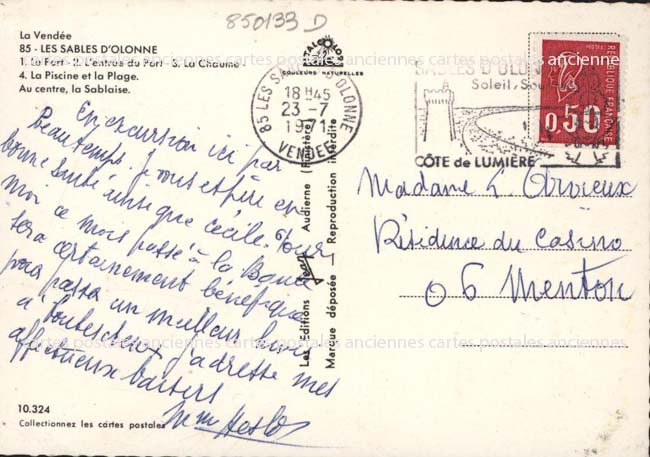 850133 D
La Vendée
85 - LES SABLES D'OLONNE
1. Le Port - 2. L'entrée du Port - 3. La Chaume
4. La Piscine et la Plage.
Au centre, la Sablaise.
COULEURS NATURELLES
85 LES SABLES D'OLONNE
18 H45
23 -7
1971
VENDEE
SABLES D'OLON
Soleil, S
CÔTE de LUMIÈRE
REPUBLIQUE FRANÇAISE
0,50
En excursion ici par
beau temps. Je vous espère en
bonne santé ainsi que Cécile. Pour
moi ce mois passé à la
sera certainement bénéfique
pour passer un meilleur hiver
à toutes deux j'adresse mes
affectueux baisers
Mme
Les Editions Jean Audierne (Finistère)
Marque déposée - Reproduction interdite
Madame L. Arvieux
Résidence du Casino
06 Menton
cartes postales anciennes cartes postales anciennes cartes postales anciennes
10.324
Collectionnez les cartes postales